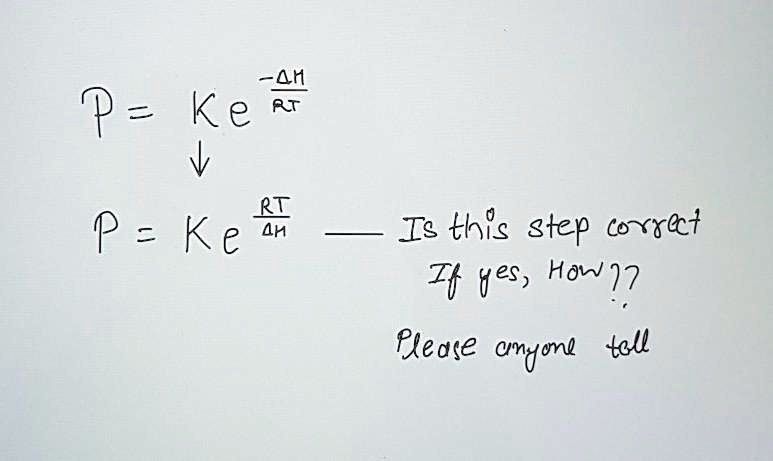 P = Ke^(-ΔH/RT)
↓
P = Ke^(RT/ΔH) — Is this step correct
If yes, How ??
Please anyone tell